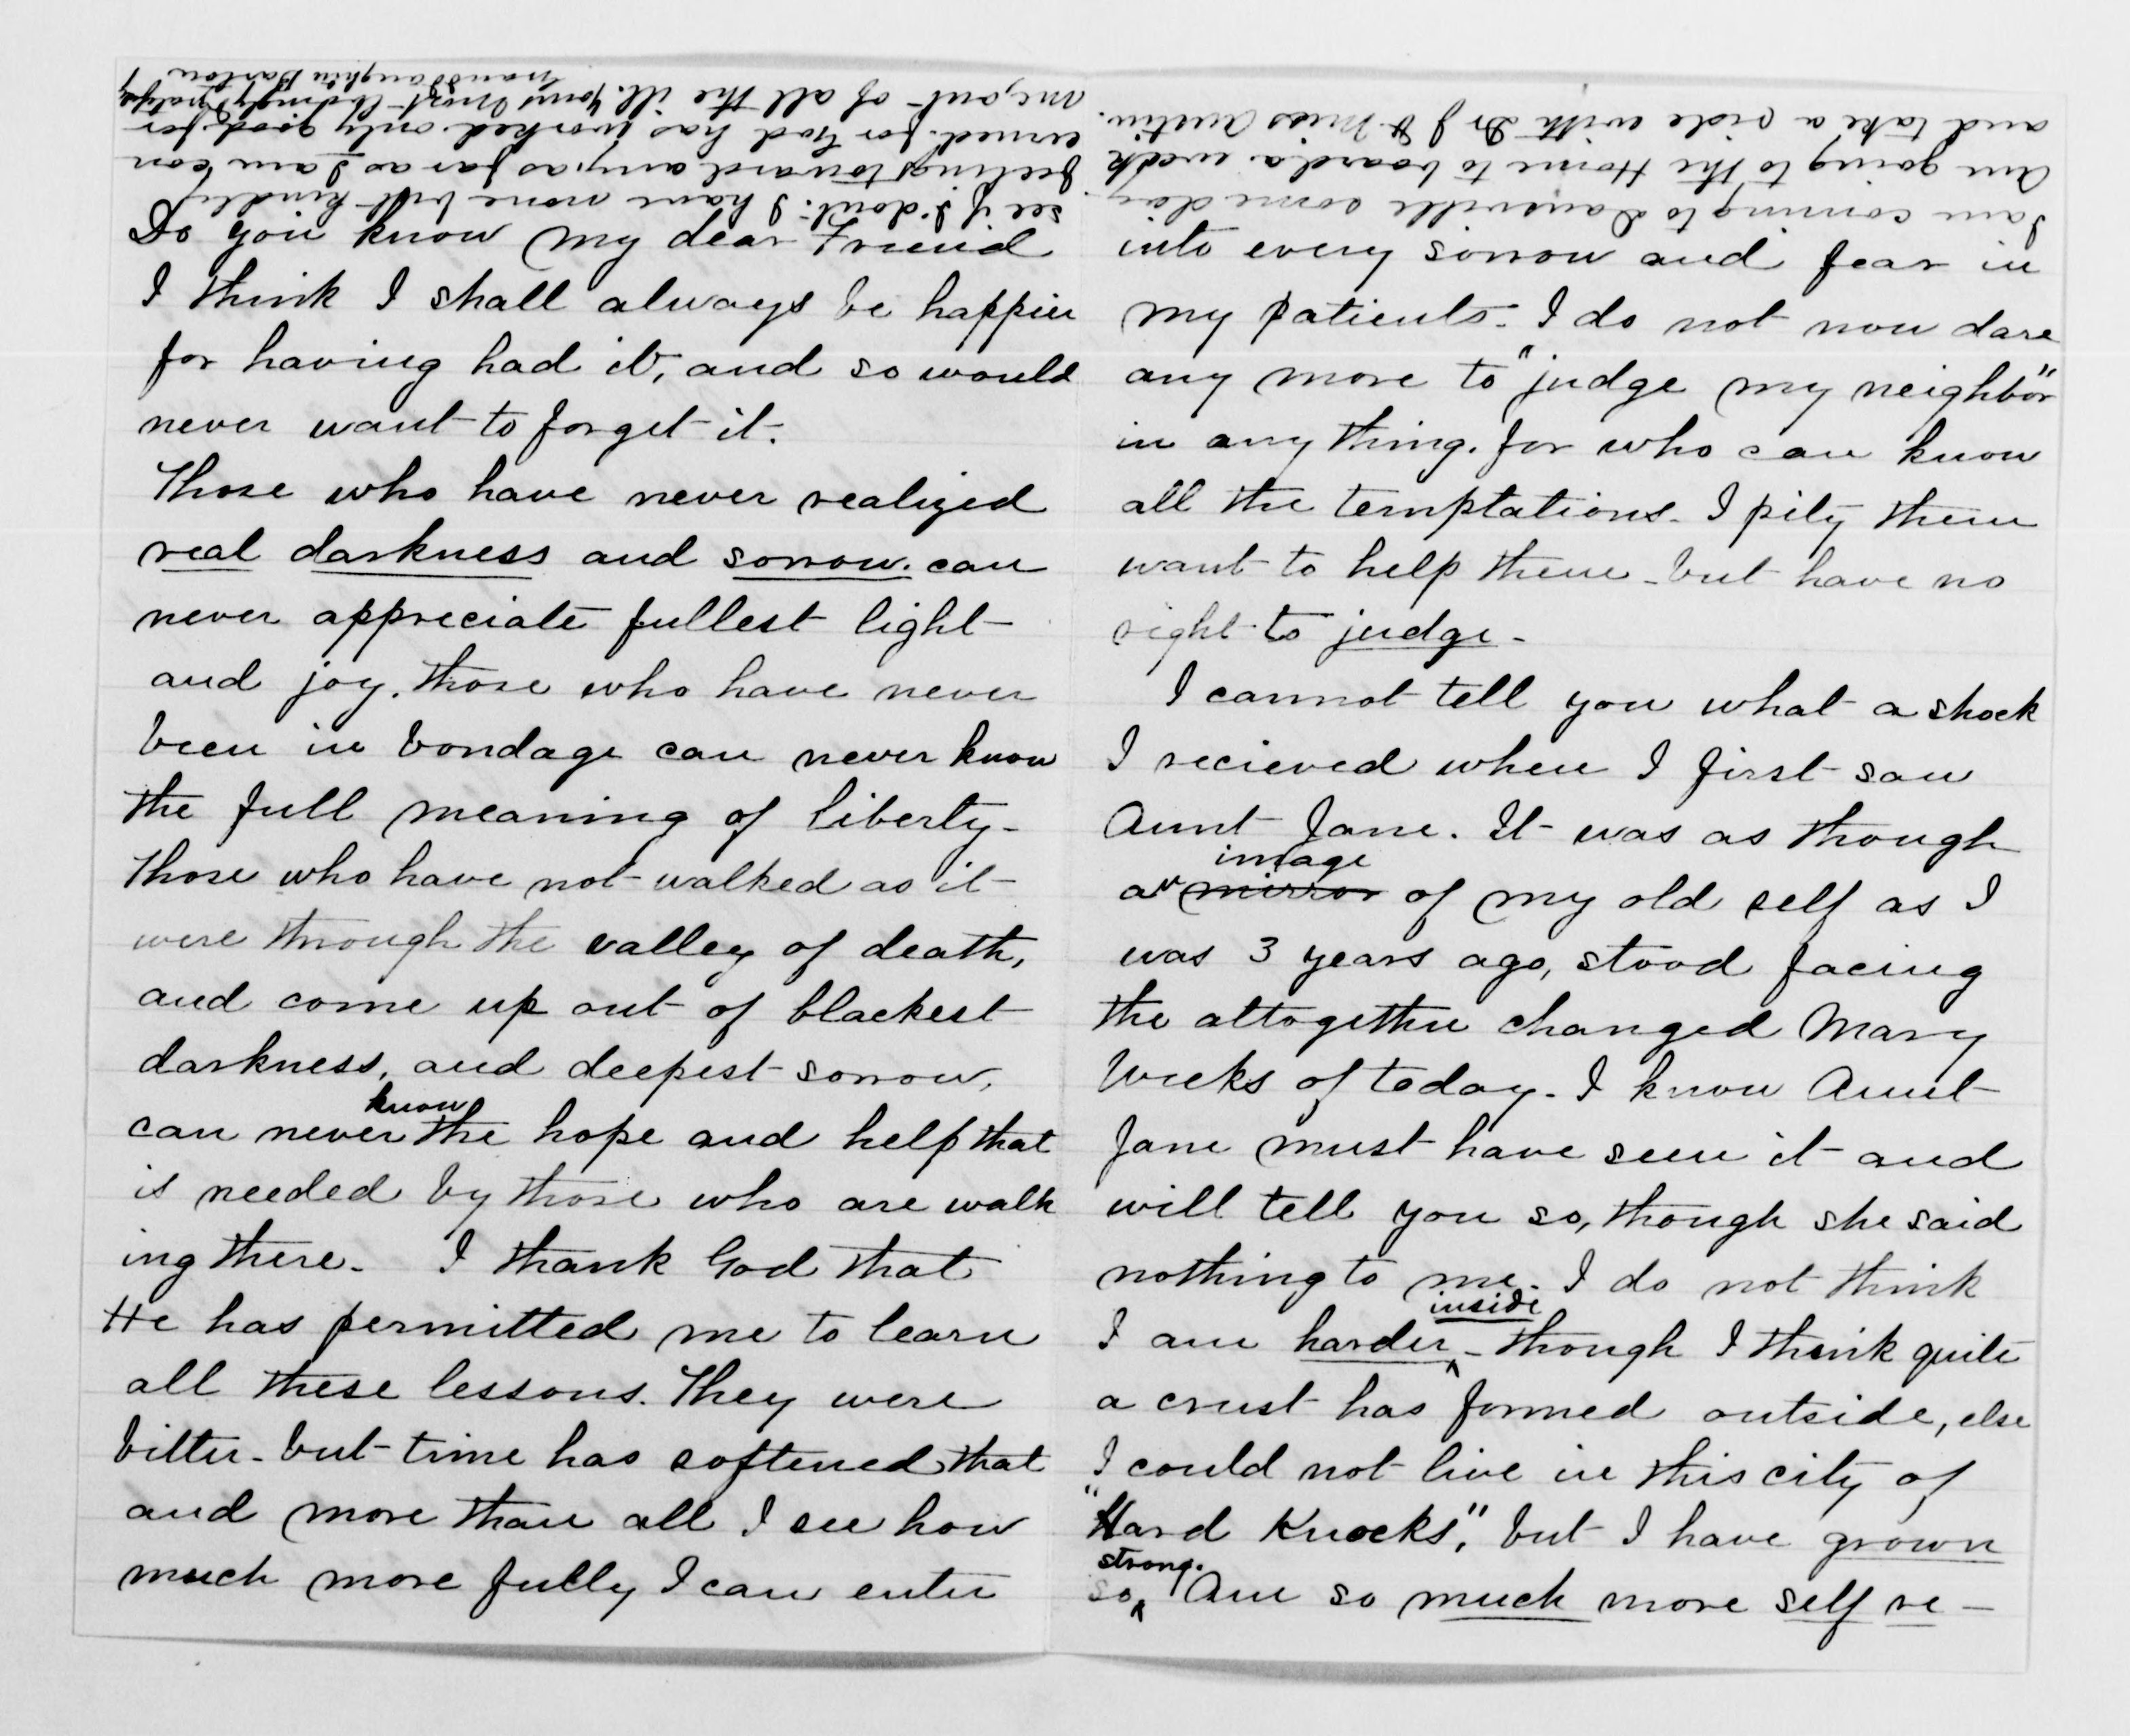 Do you know my dear Friend
I think I shall always be happier
for having had it, and so would
never want to forget it.
Those who have never realized
real darkness and sorrow. can
never appreciate fullest light
and joy. those who have never
been in bondage can never know
the full meaning of liberty-
Those who have not walked as it
were through the valley of death,
and come up out of blackest
darkness, and deepest sorrow,
know
can never the hope and help that
is needed by those who are walk
ing there. I thank God that
He has permitted me to learn
all these lessons. They were
bitter- but time has softened that
and more than all I see how
much more fully I can enter
into every sorrow and fear in
my patients- I do not now dare
any more to "judge my neighbor"
in any thing. for who can know
all the temptations- I pity them
want to help them- but have no
right to judge-
I cannot tell you what a shock
I recieved when I first saw
Aunt Jane. It was as though
image
an mirror of my old self as I
was 3 years ago, stood facing
the altogether changed Mary
Weeks of today- I know Aunt
Jane must have seen it and
will tell you so, though she said
nothing to me- I do not think
inside
I am harder - though I think quite
a crust has formed outside, else
I could not live in this city of
"Hard Knocks", but I have grown
strong.
so Am so much more self re-
I am coming to Dansville some day.
Am going to the Home to board a week
and take a ride with Dr J & Miss Austin.
see if I dont- I have none but kindly
feelings toward any, as far as I am con
cerned, for God has worked only good for
me, out of all the ill. Yours most lovingly
Barton